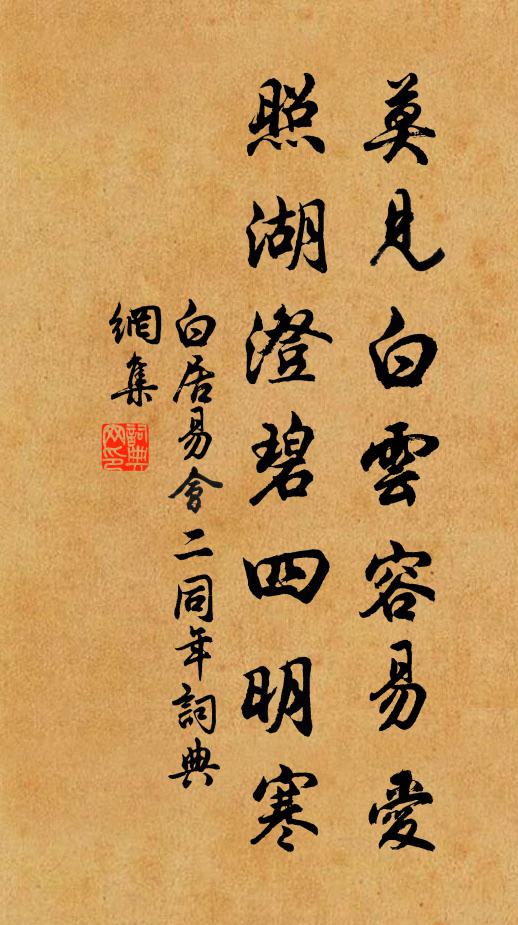 莫見白雲容易愛
照湖澄碧四明寒
白居易會二同年詞典
網集
詞典
网印